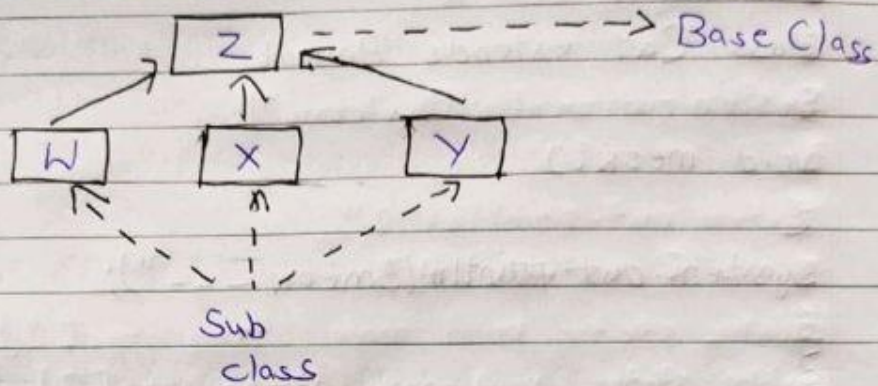 Z
Base Class
W
X
Y
Sub
class